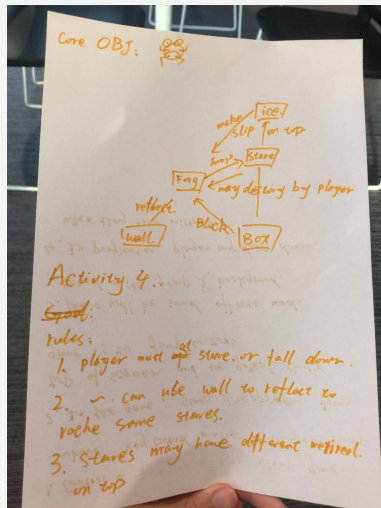 Core OBJ:
ice
make
slip
on top
Jump
Stare
Forg
may destroy by player
reflect.
Block
wall
Box
Activity 4.
Goal:
rules:
1. player must stare. or fall down.
2. ~. can use wall to reflect to
rache some stares.
3. Stares may have different
on top